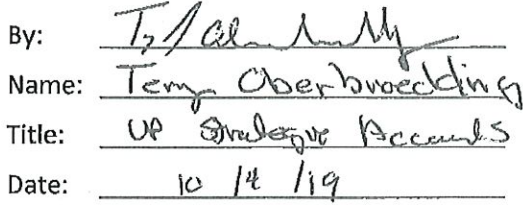 By:
Name: Terry Oberbroeckling
Title: VP Strategic Accounts
Date: 10/4/19